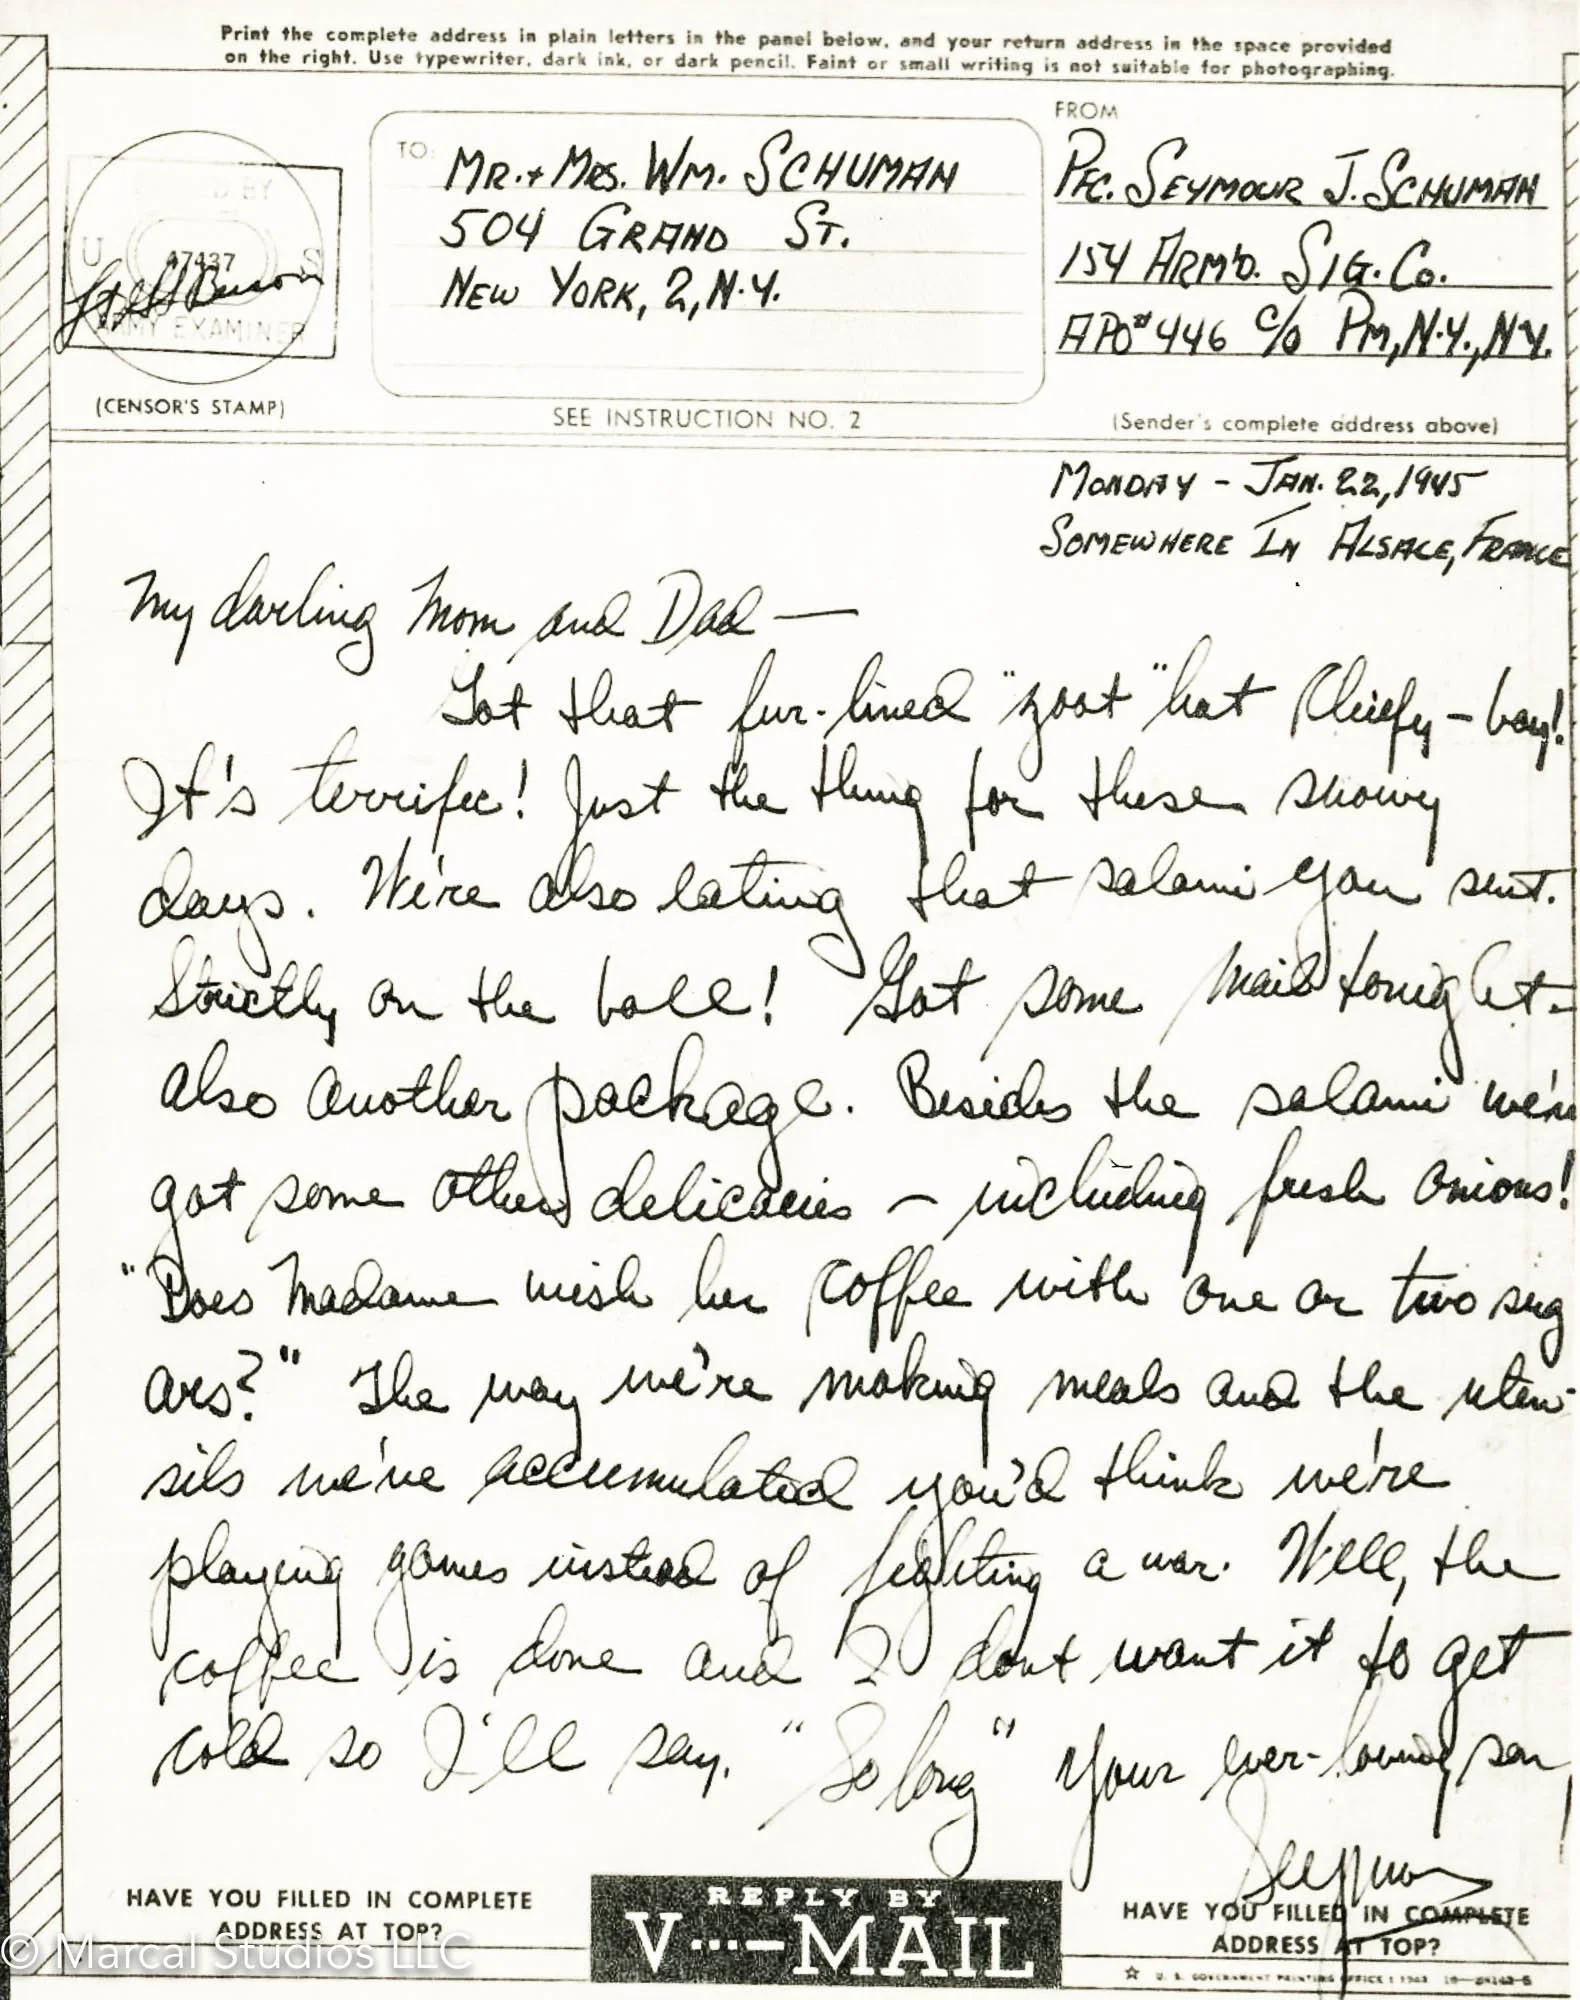 Print the complete address in plain letters in the panel below, and your return address in the space provided
on the right. Use typewriter, dark ink, or dark pencil. Faint or small writing is not suitable for photographing.
FROM
TO:
MR. + MRS. WM. SCHUMAN
504 GRAND ST.
NEW YORK, 2, N.Y.
PFC. SEYMOUR J. SCHUMAN
154 ARM'D. SIG. CO.
APO #446 C/O PM, N.Y., N.Y.
BY
U S
47437
ARMY EXAMINER
(CENSOR'S STAMP)
SEE INSTRUCTION NO. 2
(Sender's complete address above)
MONDAY - JAN. 22, 1945
SOMEWHERE IN ALSACE, FRANCE
My darling Mom and Dad —
Got that fur-lined "zoot" hat Chiefy-boy!
It's terrific! Just the thing for these snowy
days. We're also eating that salami you sent.
Strictly on the ball! Got some mail tonight-
also another package. Besides the salami we've
got some other delicacies - including fresh onions!
"Does Madame wish her coffee with one or two sug
ars?" The way we're making meals and the uten-
sils we've accumulated you'd think we're
playing games instead of fighting a war. Well, the
coffee is done and I dont want it to get
cold so I'll say, "So long" Your ever-loving son,
Seymour
HAVE YOU FILLED IN COMPLETE
ADDRESS AT TOP?
REPLY BY
V···—MAIL
HAVE YOU FILLED IN COMPLETE
ADDRESS AT TOP?
☆ U. S. GOVERNMENT PRINTING OFFICE : 1943
© Marcal Studios LLC